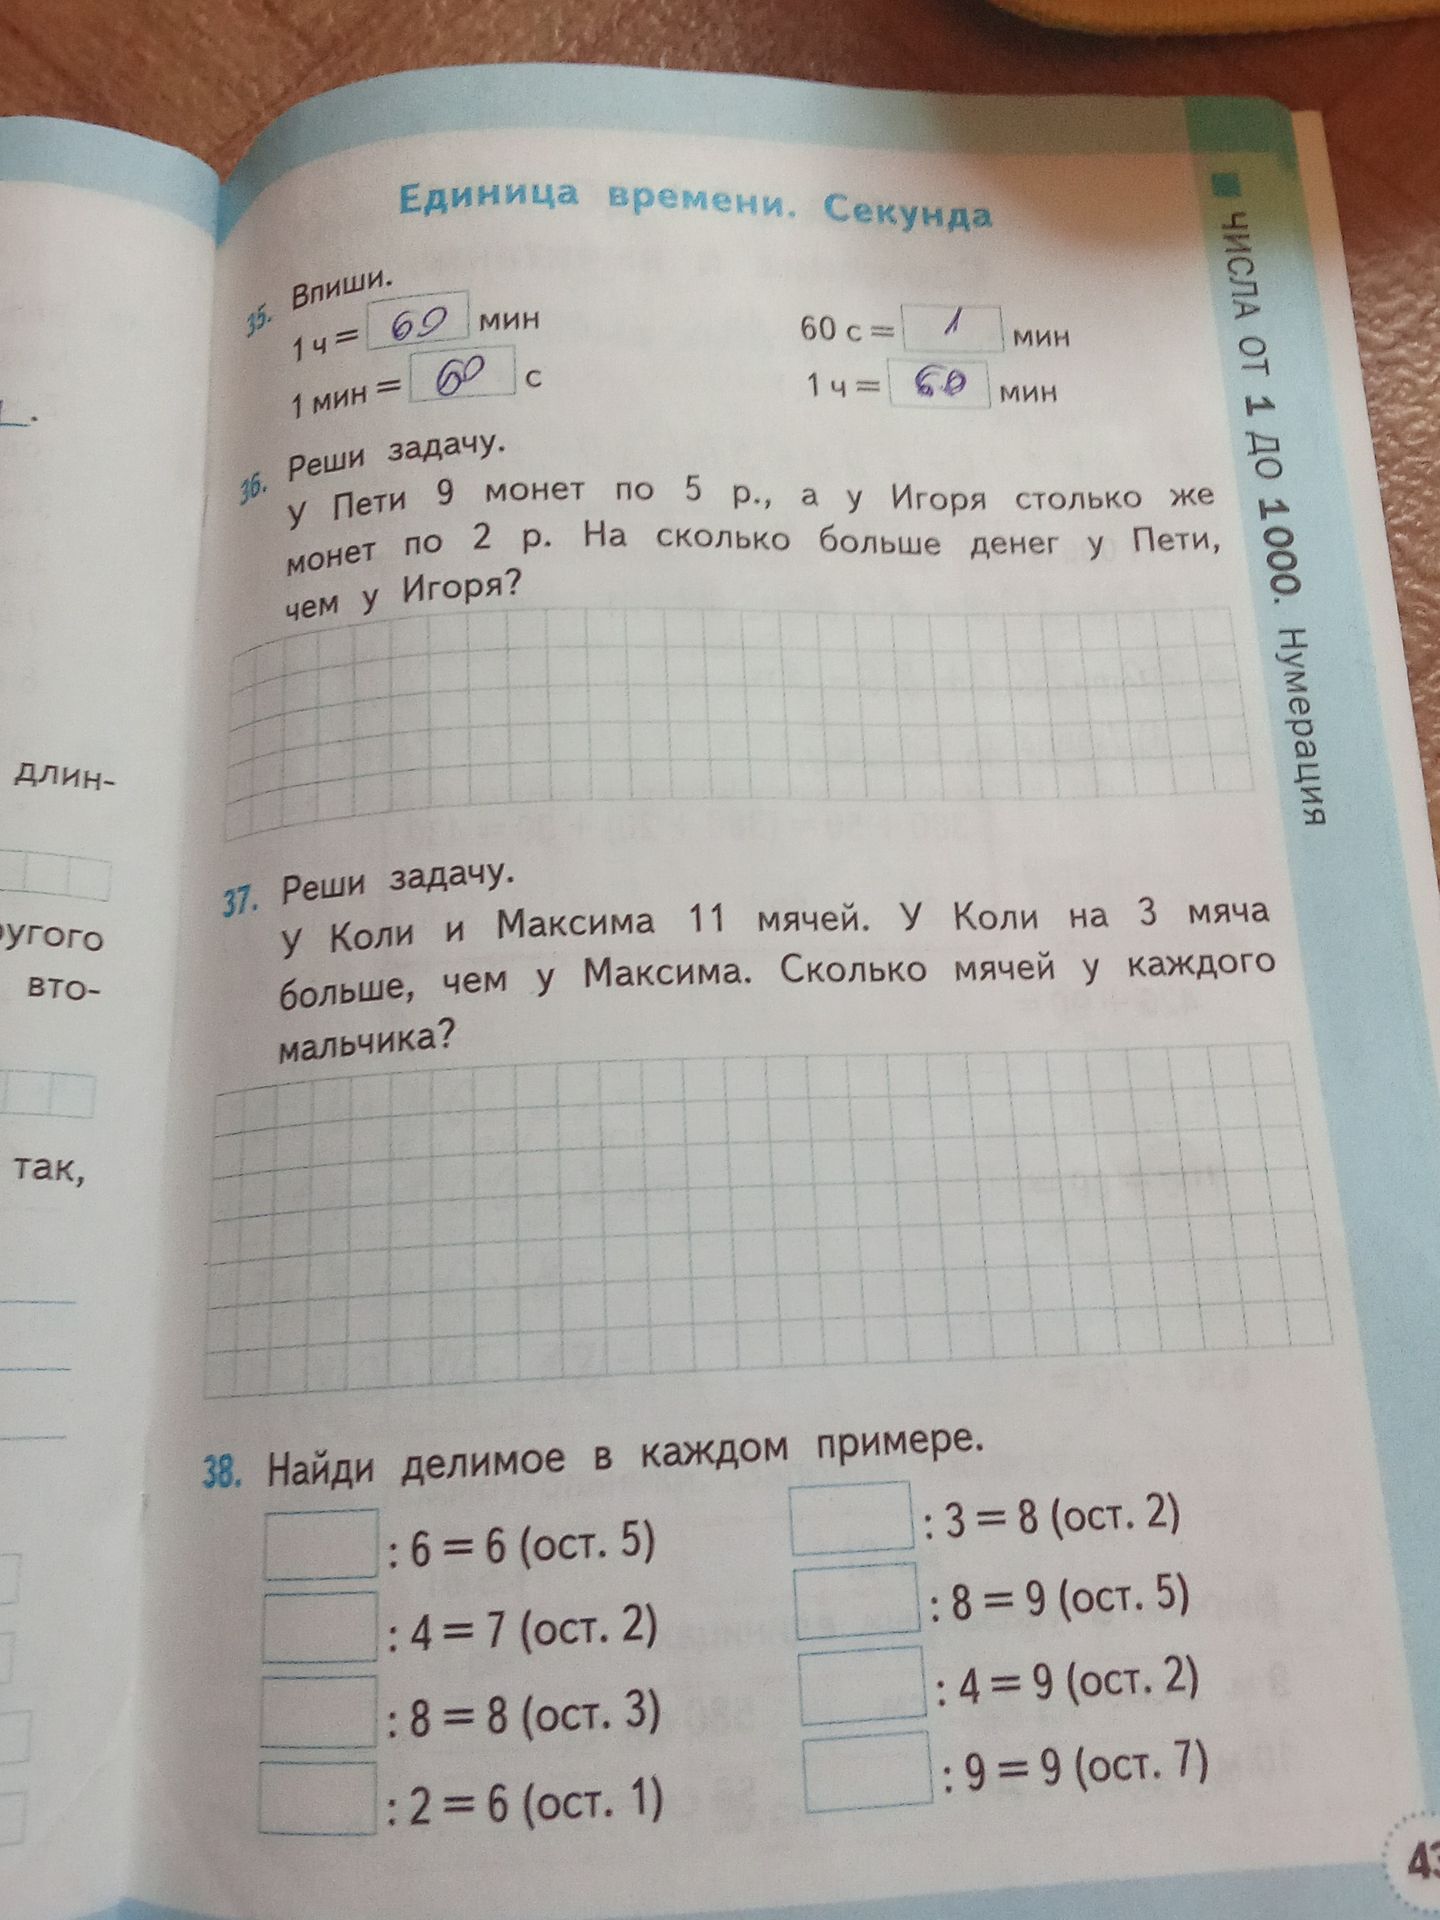 Единица времени. Секунда
35. Впиши.
1 ч = 60 мин
60 с = 1 мин
1 мин = 60 с
1 ч = 60 мин
36. Реши задачу.
У Пети 9 монет по 5 р., а у Игоря столько же
монет по 2 р. На сколько больше денег у Пети,
чем у Игоря?
37. Реши задачу.
У Коли и Максима 11 мячей. У Коли на 3 мяча
больше, чем у Максима. Сколько мячей у каждого
мальчика?
38. Найди делимое в каждом примере.
: 6 = 6 (ост. 5)
: 3 = 8 (ост. 2)
: 4 = 7 (ост. 2)
: 8 = 9 (ост. 5)
: 8 = 8 (ост. 3)
: 4 = 9 (ост. 2)
: 2 = 6 (ост. 1)
: 9 = 9 (ост. 7)
43
ЧИСЛА ОТ 1 ДО 1000. Нумерация
длин-
ругого
вто-
так,